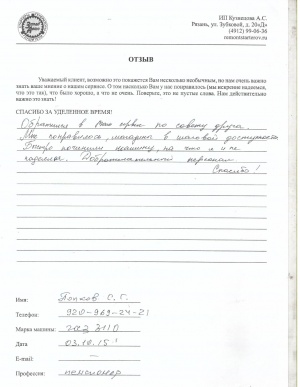 ИП Кузнецов А.С.
Рязань, ул. Зубковой, д. 20«Д»
(4912) 99-06-36
ОТЗЫВ
Уважаемый клиент, возможно это покажется Вам несколько необычным, но нам очень важно
знать ваше мнение о нашем сервисе. О том насколько Вам у нас понравилось (мы искренне надеемся,
что это так), что было хорошо, а что не очень. Поверьте, это не пустые слова. Нам действительно
важно это знать!
СПАСИБО ЗА УДЕЛЕННОЕ ВРЕМЯ!
Обратился в сервис по совету друга.
Мне понравилось, в шаговой доступности
Быстро починили машину, на что я и не
надеялся. Доброжелательный персонал
Спасибо!
Имя: Попков С. Г.
Телефон: 920-962-24-21
Марка машины: газ 3110
Дата 03.10.15
E-mail: —
Профессия: пенсионер